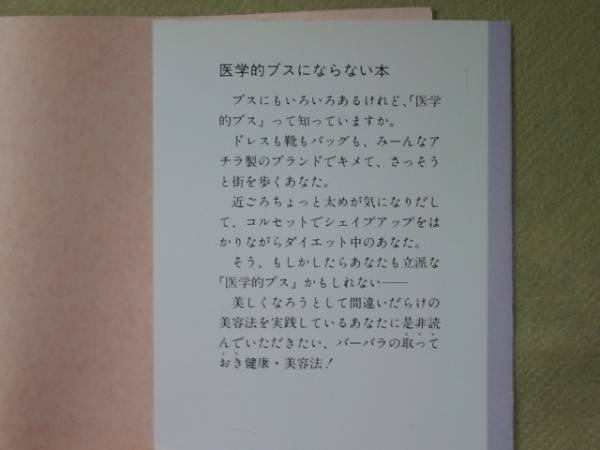 医学的ブスにならない本
ブスにもいろいろあるけれど、「医学
的ブス」って知っていますか。
ドレスも靴もバッグも、みーんなア
チラ製のブランドでキメて、さっそう
と街を歩くあなた。
近ごろちょっと太めが気になりだし
て、コルセットでシェイプアップをは
かりながらダイエット中のあなた。
そう、もしかしたらあなたも立派な
「医学的ブス」かもしれない――
美しくなろうとして間違いだらけの
美容法を実践しているあなたに是非読
んでいただきたい、バーバラの取って
おき健康・美容法!